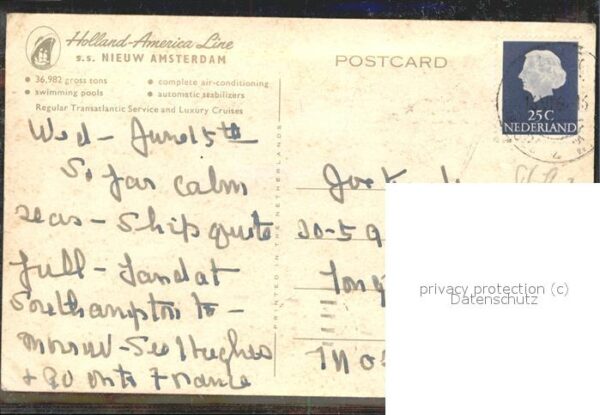 Holland-America Line
s.s. NIEUW AMSTERDAM
• 36,982 gross tons • complete air-conditioning
• swimming pools • automatic stabilizers
Regular Transatlantic Service and Luxury Cruises
POSTCARD
25C
NEDERLAND
PRINTED IN THE NETHERLANDS
Wed - June 15th
So far calm
seas - Ship quite
full - Land at
Southampton to-
morrow - See Hughes
+ go onto France
30-59
Long
privacy protection (c)
Datenschutz